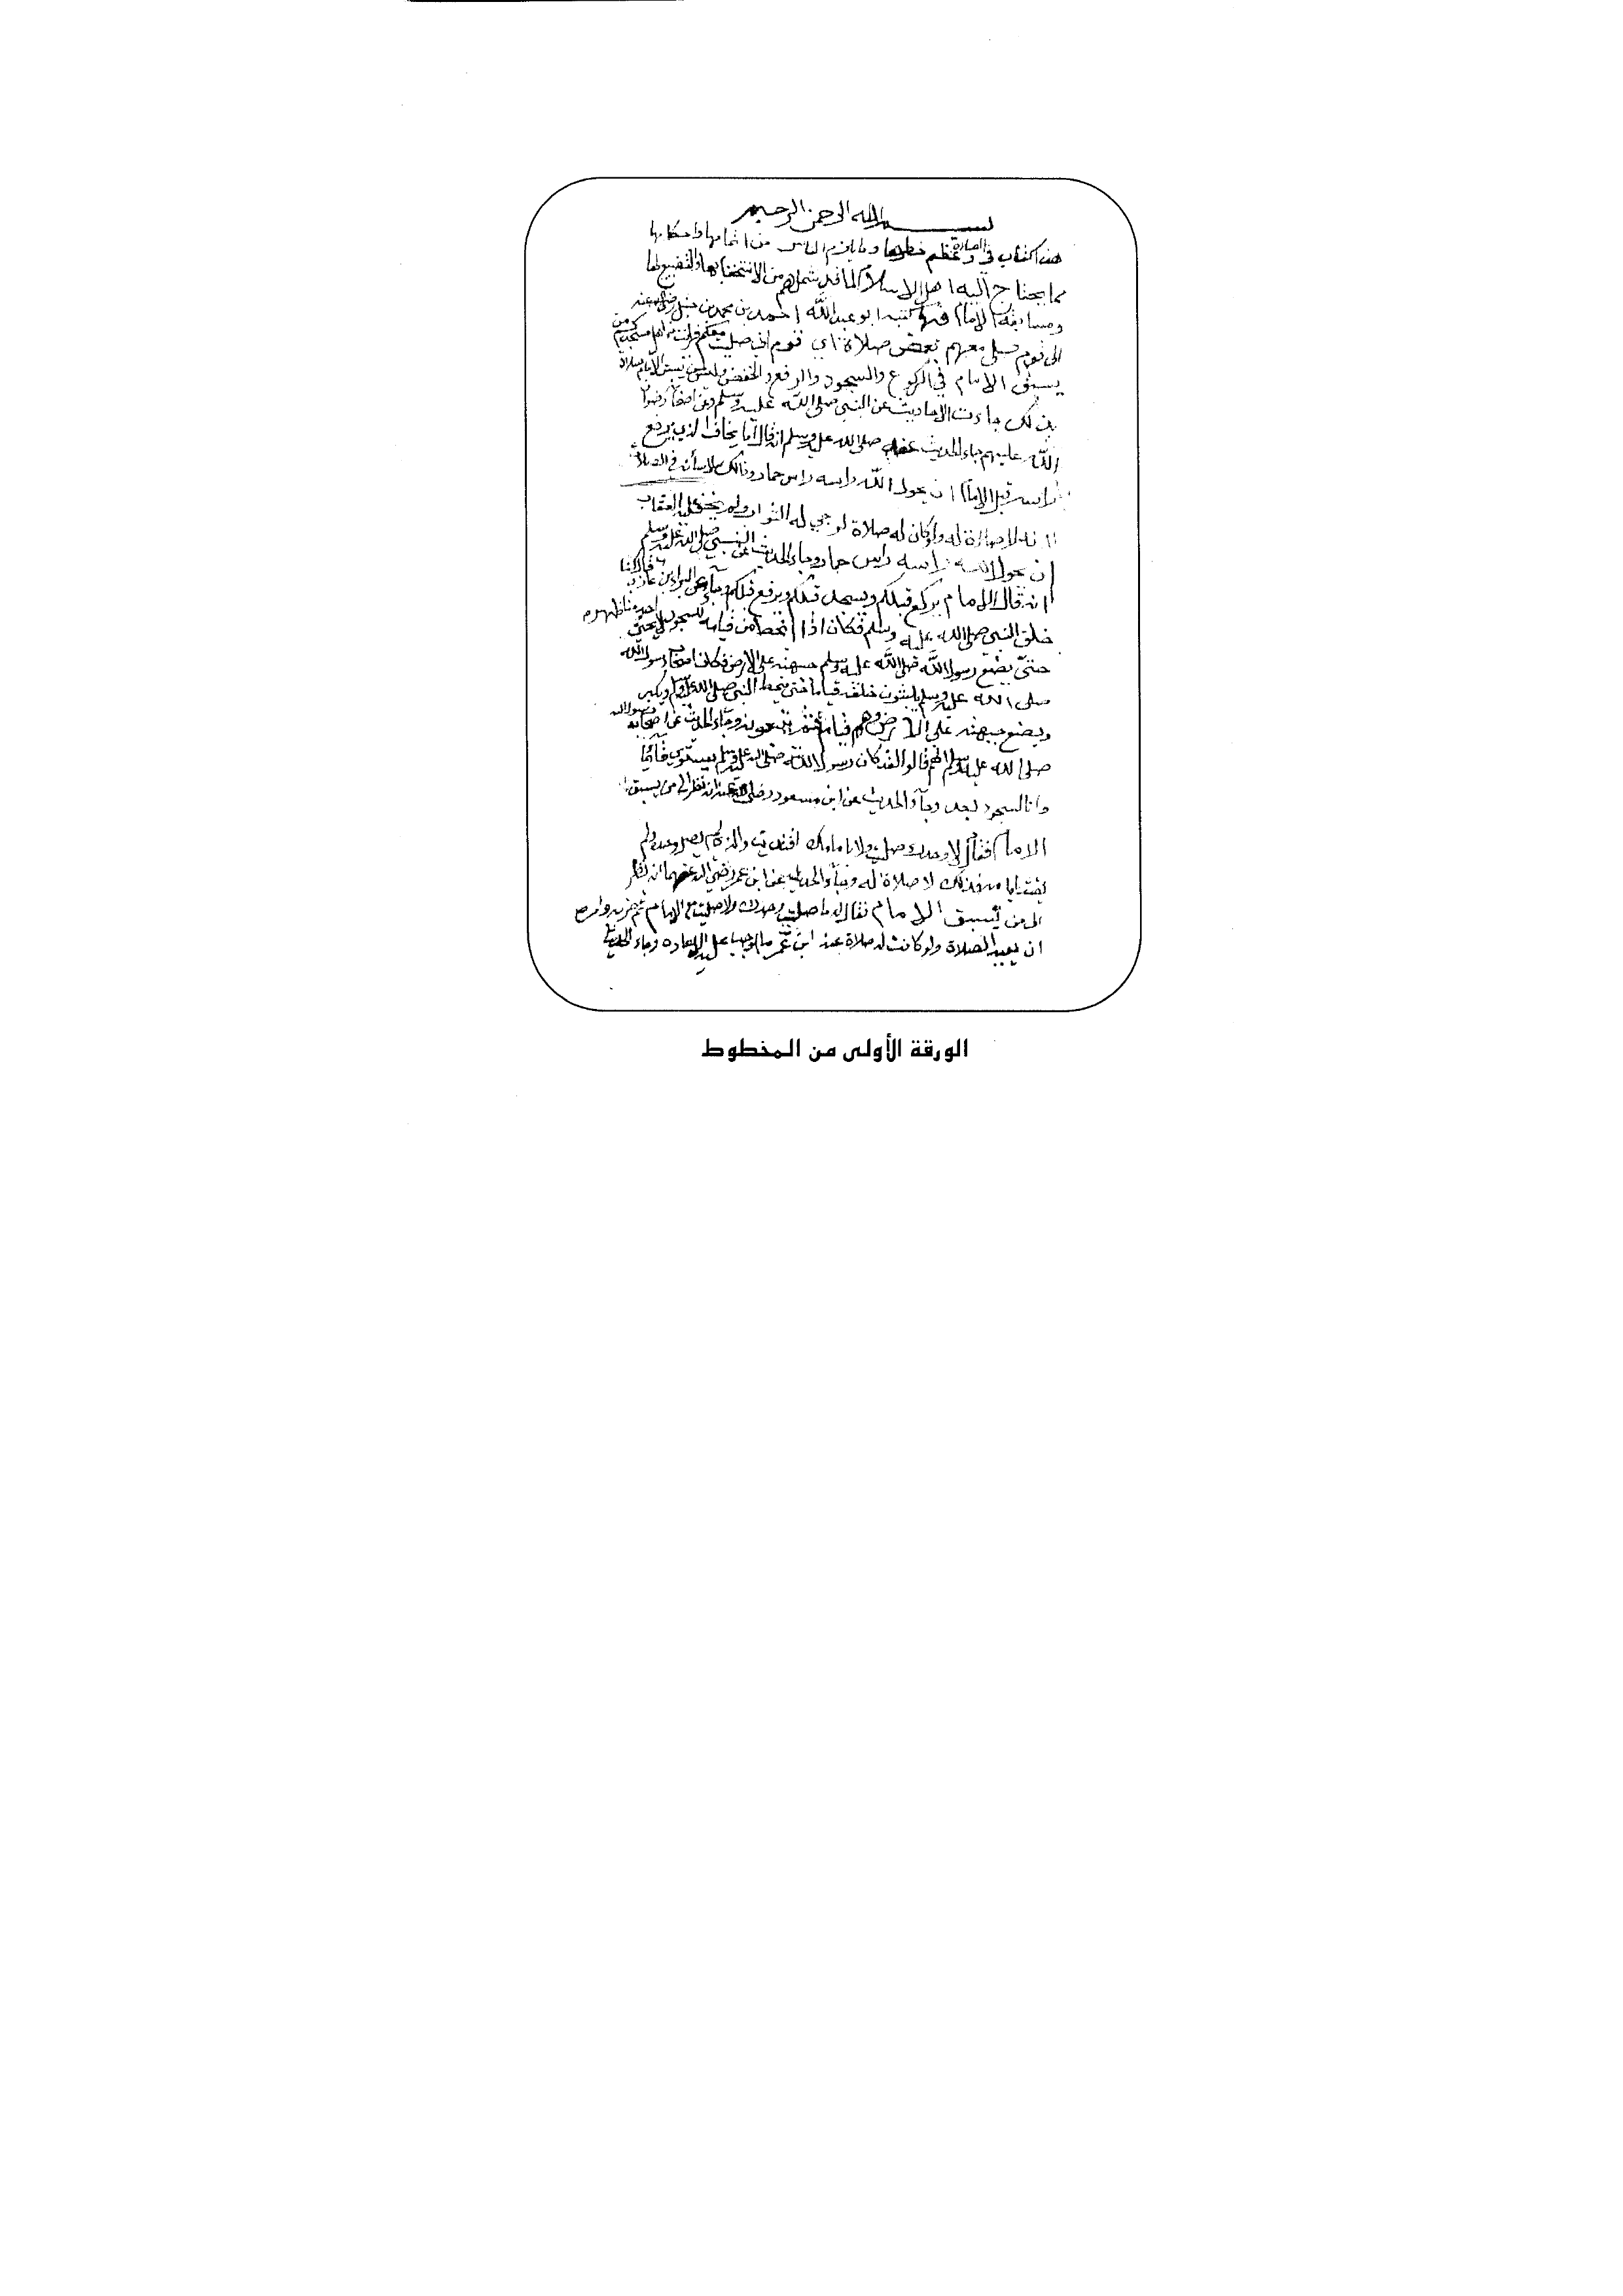 بسم الله الرحمن الرحيم
هذا كتاب في الصلاة وعظم خطرها وما يلزم الناس من اتمامها واحكامها
مما يحتاج اليه اهل الاسلام لما قد شملهم من الاستخفاف بها والتضييع لها
ومسابقة الامام فيها كتبه ابو عبد الله احمد بن محمد بن حنبل رضي الله عنه
الى قوم صلى معهم بعض صلاة اي قوم اني صليت معكم فرايت من اهل مسجدكم من
يسبق الامام في الركوع والسجود والرفع والخفض وليس لمن يسبق الامام صلاة
بذلك جاءت الاحاديث عن النبي صلى الله عليه وسلم وعن اصحابه رضوان
الله عليهم جاء الحديث عنه صلى الله عليه وسلم انه قال اما يخاف الذي يرفع
راسه قبل الامام ان يحول الله راسه راس حمار وذلك لاساته في الصلاة
لانه لا صلاة له ولو كان له صلاة لرجي له الثواب ولم يخف عليه العقاب
ان يحول الله راسه راس حمار وجاء الحديث عن النبي صلى الله عليه وسلم
انه قال الامام يركع قبلكم ويسجد قبلكم ويرفع قبلكم وجاء عن البراء بن عازب قال كنا
خلف النبي صلى الله عليه وسلم فكان اذا انحط من قيامه للسجود لا يحني احد منا ظهره
حتى يضع رسول الله صلى الله عليه وسلم جبهته على الارض فكان اصحاب رسول الله
صلى الله عليه وسلم يلبثون خلفه قياما حتى ينحط النبي صلى الله عليه وسلم ويكبر
ويضع جبهته على الارض وهم قيام ثم يتبعونه وجاء الحديث عن اصحاب رسول الله
صلى الله عليه وسلم انهم قالوا لقد كان رسول الله صلى الله عليه وسلم يستوي قائما
وانا لسجود بعد وجاء الحديث عن ابن مسعود رضي الله عنه انه نظر الى من يسبق
الامام فقال لا وحدك صليت ولا بامامك اقتديت والذي لم يصل وحده ولم
يقتد بامامه فذلك لا صلاة له وجاء الحديث عن ابن عمر رضي الله عنهما انه نظر
الى من يسبق الامام فقال له ما صليت وحدك ولا صليت مع الامام ثم ضربه وامره
ان يعيد الصلاة ولو كانت له صلاة عند ابن عمر ما اوجب عليه الاعادة وجاء الحديث
الورقة الأولى من المخطوط